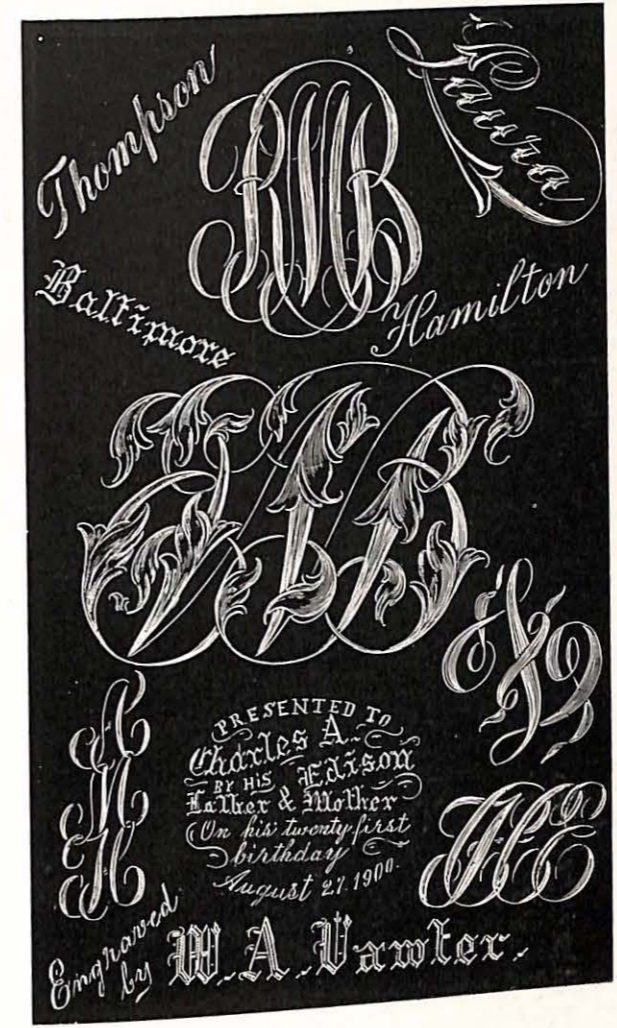 Thompson
Laura
RMB
Baltimore
Hamilton
PRESENTED TO
Charles A.
BY HIS Edison
Father & Mother
On his twenty first
birthday
August 27. 1900.
Engraved
by W. A. Vawter.